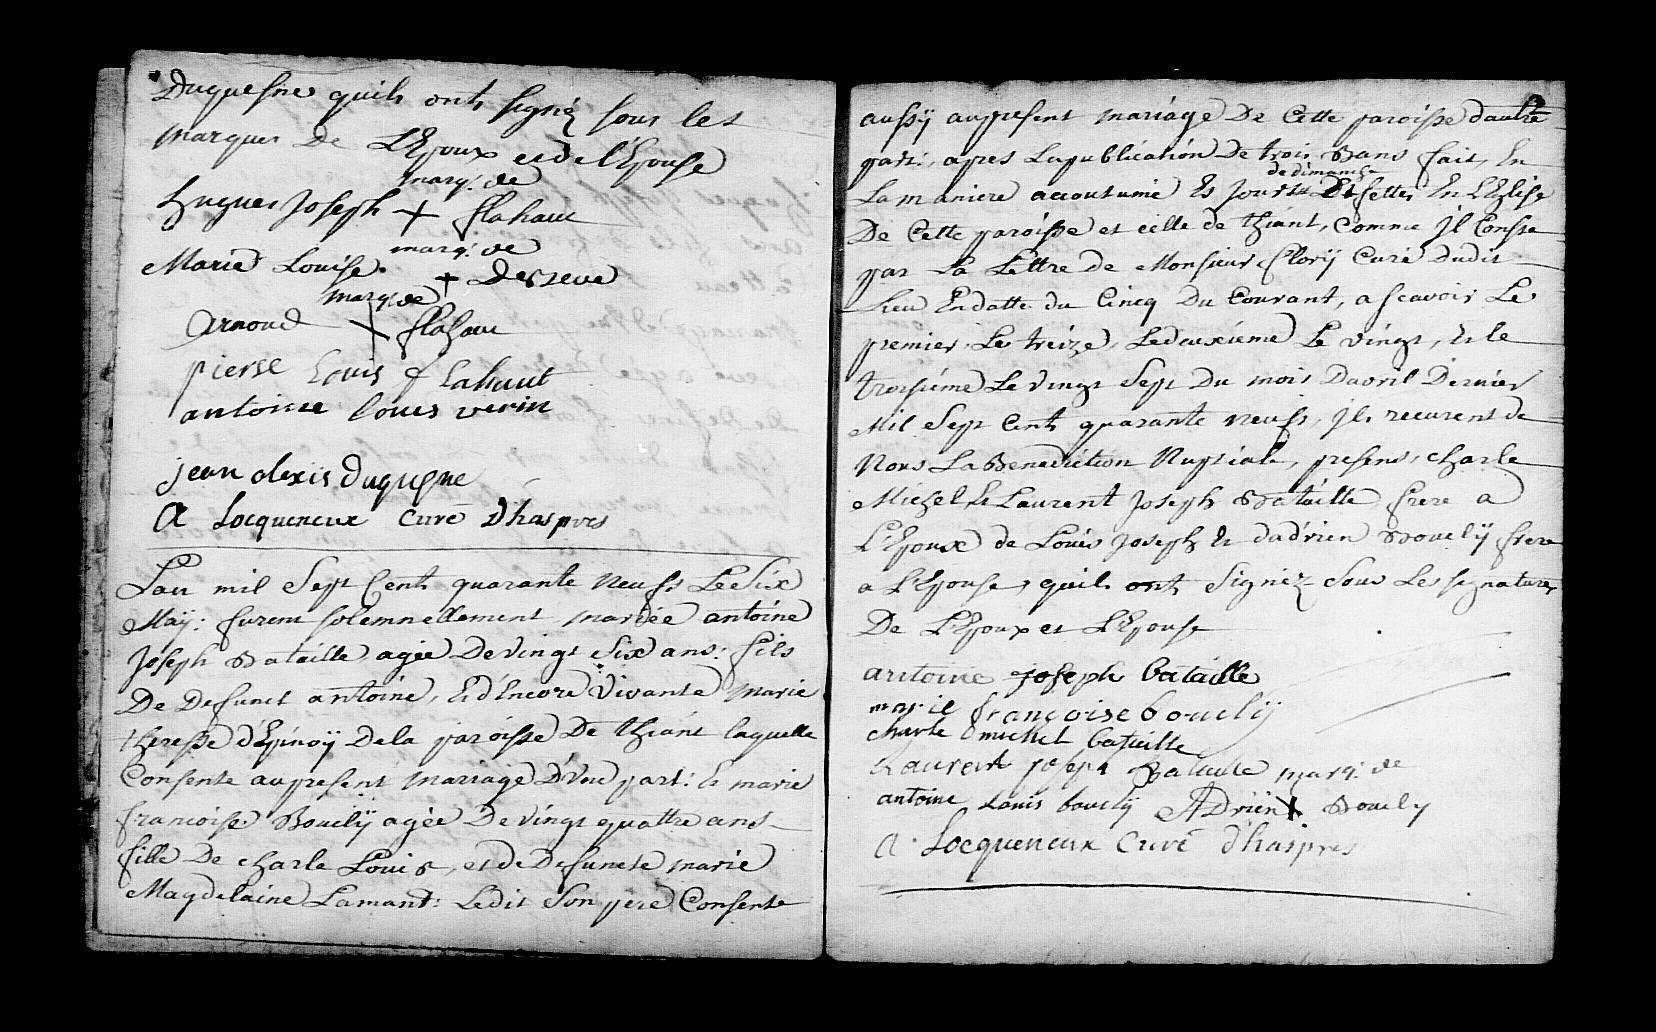 Duquesne quils onts signé sous les
marques De L'Epoux et de l'Epouse
marq: de
hugues Joseph + flahaut
marq: de
Marie Louise + Deszeve
marq: de
Arnoud + flahau
pierse Louis flahaut
antoinne louis verin
jean alexis duquesne
A Locqueneux curé d'haspres
Lan mil Sept Cents quarante neufs Le Six
Maÿ: furent solemnellement mariée antoine
Joseph Bataille agée De vingt Six ans: fils
De Defunct antoine, Et d'Encore Vivante marie
theresse d'Epinoÿ De la paroisse De thiant laquelle
Consente au present mariage D'Une part: & marie
francoise Bouclÿ agée De vingt quattre ans
fille De charle Louis, et de Defuncte marie
Magdelaine Lamant: Ledit Son pere Consente
aussÿ au present mariage De Cette paroisse d'autre
part: apres La publication De trois Bans fait, En
de dimanche
La maniere accoutumé Es Jours Et fettes En L'Eglise
De Cette paroisse et celle de thiant, Comme Jl Conste
par La Lettre de Monsieur florÿ Curé dudit
Lieu En datte du Cincq Du Courant, a scavoir Le
premier Le treize, Le deuxiéme Le vingt, & le
troisiéme Le vingt Sept Du mois D'avril Dernier
Mil Sept Cents quarante neufs, Jls recurent de
Nous La Benediction Nuptiale, presens, charle
Michel & Laurent Joseph Bataille frere a
L'Epoux de Louis Joseph & d'adrien Bouclÿ frere
a L'Epouse, quils onts Signez Sous Les signatures
De L'Epoux et L'Epouse
antoine joseph bataille
marie françoise bouclÿ
charle michel bataille
Laurent joseph Bataille marq: de
antoine Louis bouclÿ ADrien + Boucly
A Locqueneux Curé d'haspres